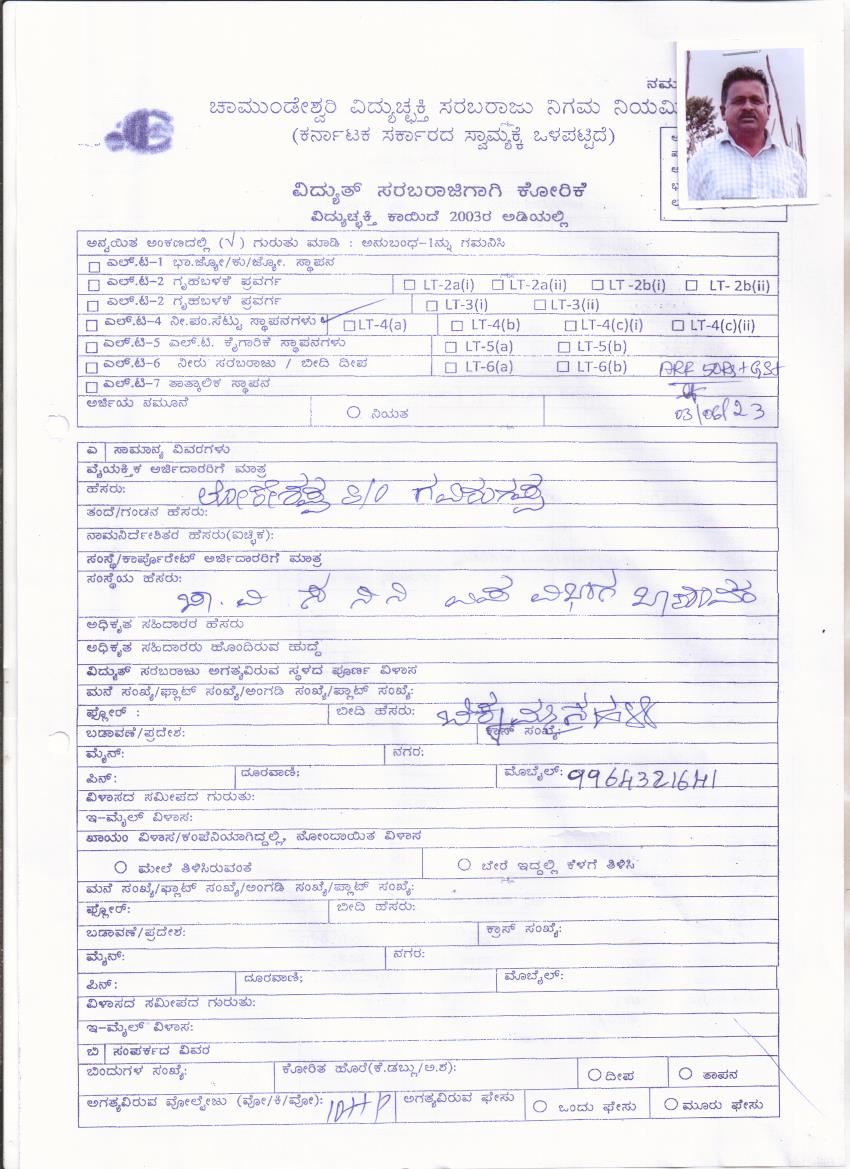 ಚಾಮುಂಡೇಶ್ವರಿ ವಿದ್ಯುಚ್ಛಕ್ತಿ ಸರಬರಾಜು ನಿಗಮ
(ಕರ್ನಾಟಕ ಸರ್ಕಾರದ ಸ್ವಾಮ್ಯಕ್ಕೆ ಒಳಪಟ್ಟಿದೆ)
ವಿದ್ಯುತ್ ಸರಬರಾಜಿಗಾಗಿ ಕೋರಿಕೆ
ವಿದ್ಯುಚ್ಛಕ್ತಿ ಕಾಯಿದೆ 2003ರ ಅಡಿಯಲ್ಲಿ
ಅನ್ವಯಿತ ಅಂಕಣದಲ್ಲಿ (√) ಗುರುತು ಮಾಡಿ : ಅನುಬಂಧ-1ನ್ನು ಗಮನಿಸಿ
ಎಲ್.ಟಿ-1 ಭಾ.ಜ್ಯೋ/ಕು/ಜ್ಯೋ. ಸ್ಥಾಪನ
ಎಲ್.ಟಿ-2 ಗೃಹಬಳಕೆ ಪ್ರವರ್ಗ LT-2a(i) LT-2a(ii) LT -2b(i) LT- 2b(ii)
ಎಲ್.ಟಿ-2 ಗೃಹಬಳಕೆ ಪ್ರವರ್ಗ LT-3(i) LT-3(ii)
ಎಲ್.ಟಿ-4 ನೀ.ಪಂ.ಸೆಟ್ಟು ಸ್ಥಾಪನಗಳು LT-4(a) LT-4(b) LT-4(c)(i) LT-4(c)(ii)
ಎಲ್.ಟಿ-5 ಎಲ್.ಟಿ. ಕೈಗಾರಿಕೆ ಸ್ಥಾಪನಗಳು LT-5(a) LT-5(b)
ಎಲ್.ಟಿ-6 ನೀರು ಸರಬರಾಜು / ಬೀದಿ ದೀಪ LT-6(a) LT-6(b)
ಎಲ್.ಟಿ-7 ತಾತ್ಕಾಲಿಕ ಸ್ಥಾಪನ
ಅರ್ಜಿಯ ನಮೂನೆ ನಿಯತ 03/06/23
ಎ ಸಾಮಾನ್ಯ ವಿವರಗಳು
ವೈಯಕ್ತಿಕ ಅರ್ಜಿದಾರರಿಗೆ ಮಾತ್ರ
ಹೆಸರು: ಲೋಕೇಶಪ್ಪ S/O
ತಂದೆ/ಗಂಡನ ಹೆಸರು:
ನಾಮನಿರ್ದೇಶಿತರ ಹೆಸರು(ಐಚ್ಛಿಕ):
ಸಂಸ್ಥೆ/ಕಾರ್ಪೊರೇಟ್ ಅರ್ಜಿದಾರರಿಗೆ ಮಾತ್ರ
ಸಂಸ್ಥೆಯ ಹೆಸರು:
ಅಧಿಕೃತ ಸಹಿದಾರರ ಹೆಸರು
ಅಧಿಕೃತ ಸಹಿದಾರರು ಹೊಂದಿರುವ ಹುದ್ದೆ
ವಿದ್ಯುತ್ ಸರಬರಾಜು ಅಗತ್ಯವಿರುವ ಸ್ಥಳದ ಪೂರ್ಣ ವಿಳಾಸ
ಮನೆ ಸಂಖ್ಯೆ/ಫ್ಲಾಟ್ ಸಂಖ್ಯೆ/ಅಂಗಡಿ ಸಂಖ್ಯೆ/ಪ್ಲಾಟ್ ಸಂಖ್ಯೆ:
ಫ್ಲೋರ್ : ಬೀದಿ ಹೆಸರು:
ಬಡಾವಣೆ/ಪ್ರದೇಶ: ಕ್ರಾಸ್ ಸಂಖ್ಯೆ:
ಮೈನ್: ನಗರ:
ಪಿನ್: ದೂರವಾಣಿ; ಮೊಬೈಲ್: 9964321641
ವಿಳಾಸದ ಸಮೀಪದ ಗುರುತು:
ಇ-ಮೈಲ್ ವಿಳಾಸ:
ಖಾಯಂ ವಿಳಾಸ/ಕಂಪೆನಿಯಾಗಿದ್ದಲ್ಲಿ, ನೋಂದಾಯಿತ ವಿಳಾಸ
ಮೇಲೆ ತಿಳಿಸಿರುವಂತೆ ಬೇರೆ ಇದ್ದಲ್ಲಿ ಕೆಳಗೆ ತಿಳಿಸಿ
ಮನೆ ಸಂಖ್ಯೆ/ಫ್ಲಾಟ್ ಸಂಖ್ಯೆ/ಅಂಗಡಿ ಸಂಖ್ಯೆ/ಪ್ಲಾಟ್ ಸಂಖ್ಯೆ:
ಫ್ಲೋರ್: ಬೀದಿ ಹೆಸರು:
ಬಡಾವಣೆ/ಪ್ರದೇಶ: ಕ್ರಾಸ್ ಸಂಖ್ಯೆ:
ಮೈನ್: ನಗರ:
ಪಿನ್: ದೂರವಾಣಿ; ಮೊಬೈಲ್:
ವಿಳಾಸದ ಸಮೀಪದ ಗುರುತು:
ಇ-ಮೈಲ್ ವಿಳಾಸ:
ಬಿ ಸಂಪರ್ಕದ ವಿವರ
ಬಿಂದುಗಳ ಸಂಖ್ಯೆ: ಕೋರಿತ ಹೊರೆ(ಕೆ.ಡಬ್ಲು/ಅ.ಶ): ದೀಪ ತಾಪನ
ಅಗತ್ಯವಿರುವ ವೋಲ್ಟೇಜು (ವೋ/ಕಿ/ವೋ): 10HP ಅಗತ್ಯವಿರುವ ಫೇಸು ಒಂದು ಫೇಸು ಮೂರು ಫೇಸು